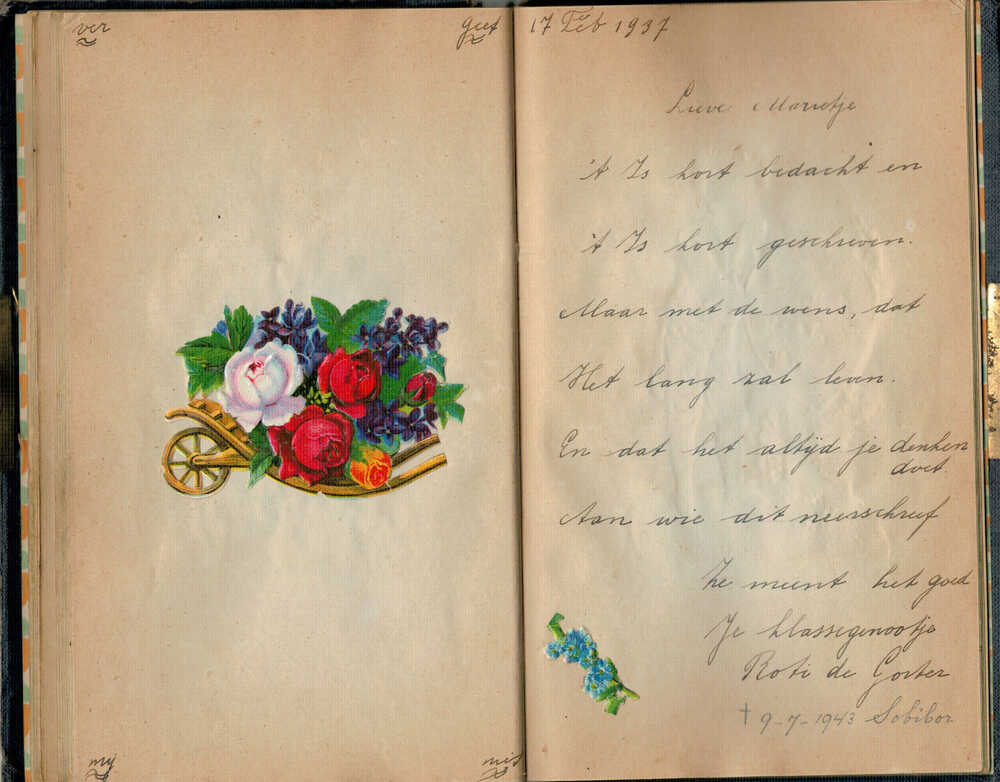 ver
geet
my
nis
17 Feb 1937
Lieve Marietje
't Is kort bedacht en
't Is kort geschreven.
Maar met de wens, dat
Het lang zal leven.
En dat het altijd je denken
doet
Aan wie dit neerschreef
Ze meent het goed
Je klassegenootje
Roti de Gorter
† 9-7-1943 Sobibor